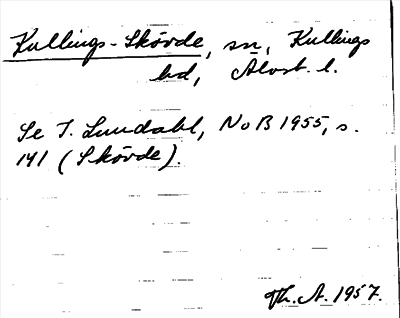 Kullings-Skövde, sn, Kullings
hd, Älvsb. l.
Se I. Lundahl, NoB 1955, s.
141 (Skövde).
Th. A. 1957.